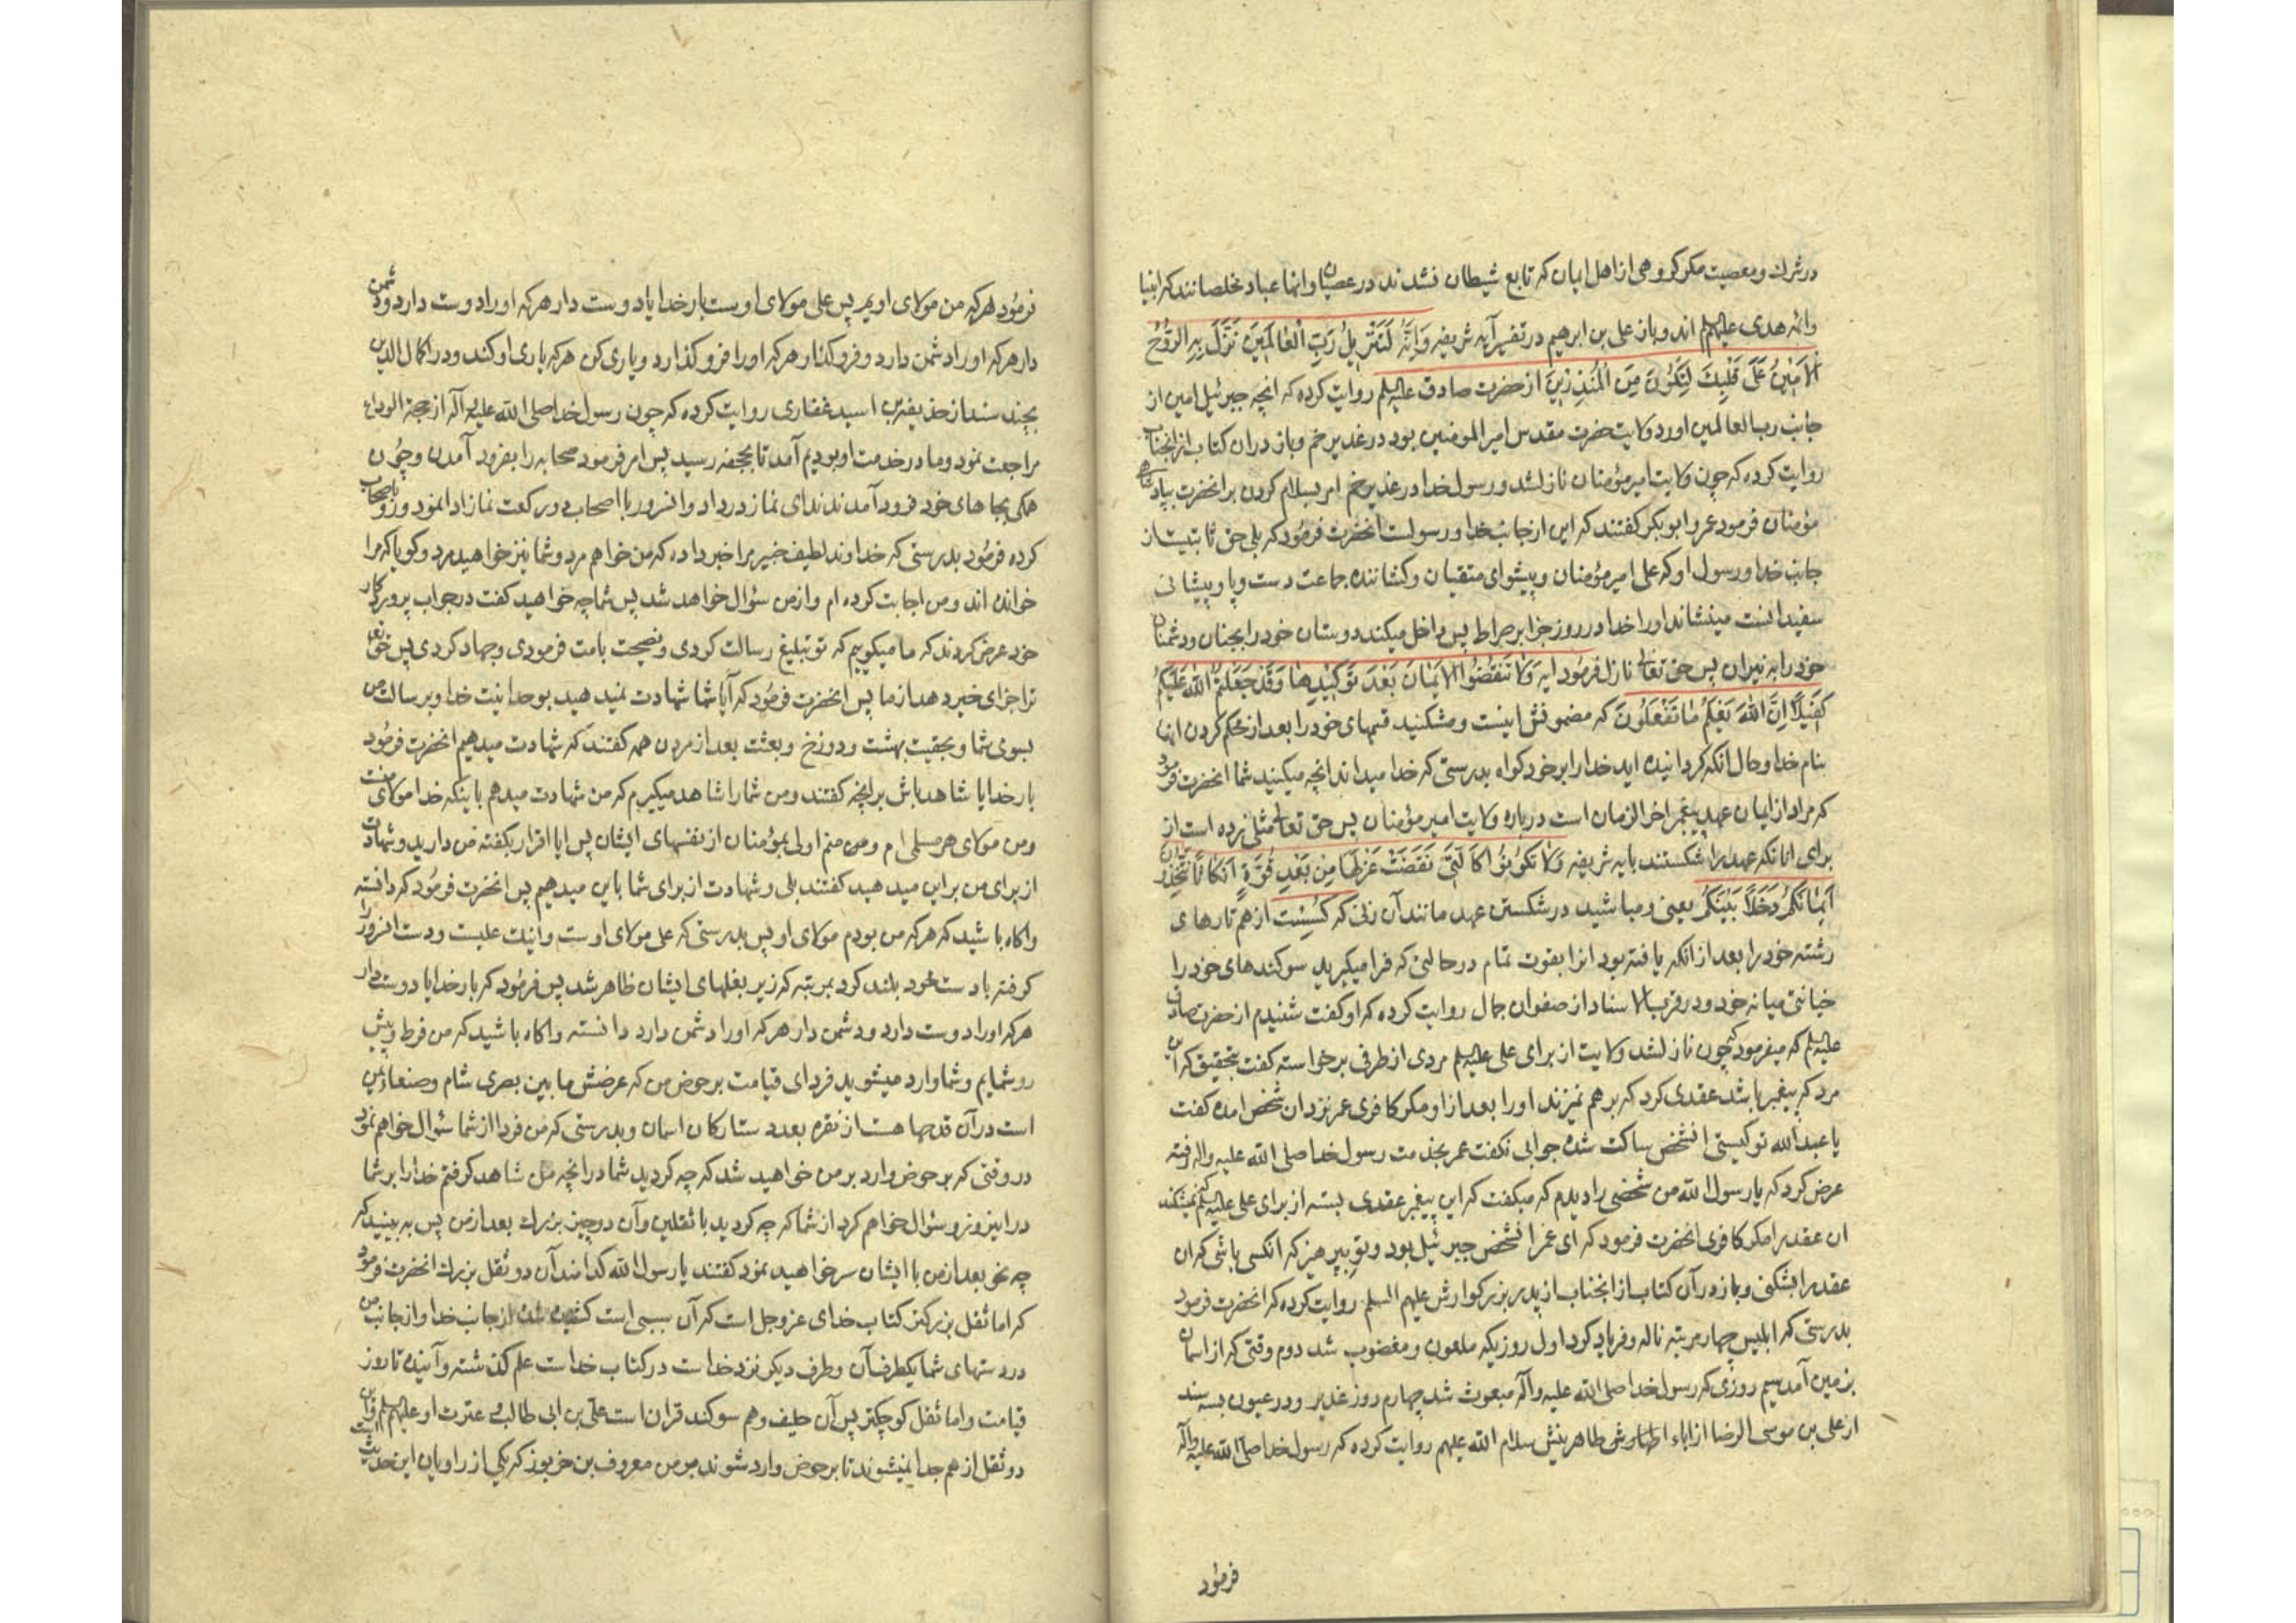 در شرك و معصیت مکر کروهی از اهل ایمان که تابع شیطان نشدند در عصیان و انها عباد مخلصانند که انبیا
وائمه هدی علیهم السلم اند و باز علی بن ابرهیم در تفسیر آیه شریفه وَاِنَّهُ لَتَنْزِیلُ رَبِّ الْعٰالَمینَ نَزَّلَ بِهِ الرُّوحُ
الاَمینُ عَلیٰ قَلْبِكَ لِتَکُونَ مِنَ الْمُنْذِرینَ از حضرت صادق علیه السلم روایت کرده که انچه جبرئیل امین از
جانب رب العالمین اورد ولایت حضرت مقدس امیر المومنین بود در غدیر خم و باز در ان کتاب از انجناب
روایت کرده که چون ولایت امیر مؤمنان نازلشد و رسول خدا در غدیر خم امر بسلام کردن بر انحضرت بپادشاهی
مؤمنان فرمود عمر و ابو بکر کفتند که این از جانب خدا و رسولست انحضرت فرمود که بلی حق ثابتیست از
جانب خدا و رسول او که علی امیر مؤمنان و پیشوای متقیان و کشاننده جماعت دست و پا و پیشانی
سفیدانست مینشاند او را خدا در روز جزا بر صراط پس داخل میکند دوستان خود را بجنان و دشمنان
خود را به نیران پس حق تعالی نازل فرمود ایه وَلا تَنْقُضُوا الاَیْمانَ بَعْدَ تَوْکیدِها وَقَدْ جَعَلْتُمُ اللهَ عَلَیْکُمْ
کَفیلًا اِنَّ اللهَ یَعْلَمُ ما تَفْعَلُونَ که مضمونش اینست و مشکنید قسمهای خود را بعد از محکم کردن انها
بنام خدا و حال انکه کردانیده اید خدا را بر خود کواه بدرستی که خدا میداند انچه میکنید شما انحضرت فرمود
که مراد از ایمان عهد پیغمبر اخر الزمان است درباره ولایت امیر مؤمنان پس حق تعالی مثلی زده است از
برای انانکه عهد را شکستند بایه شریفه وَلا تَکُونُوا کَالَّتی نَقَضَتْ غَزْلَها مِنْ بَعْدِ قُوَّةٍ اَنْکاثًا تَتَّخِذُونَ
اَیْمانَکُمْ دَخَلًا بَیْنَکُمْ یعنی و مباشید در شکستن عهد مانند آن زنی که کسست از هم تارهای
رشته خود را بعد از انکه یافته بود انرا بقوت تمام در حالتی که فرا میکیرید سوکندهای خود را
خیانتی میانه خود و در قرب الاسناد از صفوان جمال روایت کرده که او کفت شنیدم از حضرت صادق
علیه السلم که میفرمود که چون نازلشد ولایت از برای علی علیه السلم مردی از طرفی برخواسته کفت بتحقیق که این
مرد که پیغمبر باشد عقدی کرد که بر هم نمیزند او را بعد از او مکر کافری عمر نزد ان شخص امده کفت
یا عبد الله تو کیستی انشخص ساکت شده جوابی نکفت عمر بخدمت رسول خدا صلی الله علیه واله رفته
عرض کرد که یا رسول الله من شخصی را دیدم که میکفت که این پیغمبر عقدی بسته از برای علی علیه السلم که نمیشکند
ان عقد را مکر کافری انحضرت فرمود که ای عمر انشخص جبرئیل بود و تو بپرهیز که انکسی باشی که ان
عقد را بشکنی و باز در آن کتاب از انجناب از پدر بزرکوارش علیهم السلم روایت کرده که انحضرت فرمود
بدرستی که ابلیس چهار مرتبه ناله و فریاد کرد اول روزیکه ملعون و مغضوب شد دوم وقتی که از اسمان
بزمین آمد سیم روزی که رسول خدا صلی الله علیه وآله مبعوث شد چهارم روز غدیر و در عیون بسه سند
از علی بن موسی الرضا از اباء اطهارش طاهرینش سلام الله علیهم روایت کرده که رسول خدا صلی الله علیه وآله
فرمود
فرمود هر که من مولای اویم پس علی مولای اوست بار خدایا دوست دار هر که او را دوست دارد و دشمن
دار هر که او را دشمن دارد و فروکذار هر که او را فروکذارد و یاری کن هر که یاری او کند و در اکمال الدین
بچند سند از حذیفة بن اسید غفاری روایت کرده که چون رسول خدا صلی الله علیه وآله از حجة الوداع
مراجعت نمود و ما در خدمت او بودیم آمد تا بجحفه رسید پس امر فرمود صحابه را بفرود آمدن و چون
همکی بجاهای خود فرود آمدند ندای نماز در داد و انسرور با اصحاب دو رکعت نماز ادا نمود و رو باصحاب
کرده فرمود بدرستی که خداوند لطیف خبیر مرا خبر داده که من خواهم مرد و شما نیز خواهید مرد و کویا که مرا
خوانده اند و من اجابت کرده ام و از من سؤال خواهد شد پس شما چه خواهید کفت در جواب پروردکار
خود عرض کردند که ما میکوییم که تو تبلیغ رسالت کردی و نصیحت بامت فرمودی و جهاد کردی پس حق تعالی
ترا جزای خیر دهد از ما پس انحضرت فرمود که آیا شما شهادت نمیدهید بوحدانیت خدا و برسالت من
بسوی شما و بحقیت بهشت و دوزخ و بعثت بعد از مردن همه کفتند که شهادت میدهیم انحضرت فرمود
بار خدایا شاهد باش بر انچه کفتند و من شما را شاهد میکیرم که من شهادت میدهم باینکه خدا مولای منست
و من مولای هر مسلمی ام و من منم اولی بمؤمنان از نفسهای ایشان پس ایا اقرار بکفته من دارید و شهادت
از برای من براین میدهید کفتند بلی و شهادت از برای شما باین میدهیم پس انحضرت فرمود که دانسته
واکاه باشید که هر که من بودم مولای او پس بدرستی که علی مولای اوست و اینك علیست و دست انسرور را
کرفته بادست خود بلند کرد بمرتبه که زیر بغلهای ایشان ظاهر شد پس فرمود که بار خدایا دوست دار
هر که او را دوست دارد و دشمن دار هر که او را دشمن دارد دانسته واکاه باشید که من فرط و پیش
رو شمایم و شما وارد میشوید فردای قیامت بر حوض من که عرضش ما بین بصری شام و صنعاء یمن
است در آن قدحها هست از نقره بعدد ستارکان اسمان و بدرستی که من فردا از شما سئوال خواهم نمود
در وقتی که بر حوض وارد بر من خواهید شد که چه کردید شما در انچه من شاهد کرفتم خدا را بر شما
در این روز و سئوال خواهم کرد از شما که چه کردید با ثقلین وآن دو چیز بزرك بعد از من پس به بینید که
چه نحو بعد از من با ایشان سر خواهید نمود کفتند یا رسول الله کدامند آن دو ثقل بزرك انحضرت فرمود
که اما ثقل بزرکتر کتاب خدای عزوجل است که آن سببی است کشیده شده از جانب خدا و از جانب من
در دستهای شما یکطرف آن وطرف دیکر نزد خداست در کتاب خداست علم کذشته و آینده تا روز
قیامت و اما ثقل کوچکتر پس آن حلیف و هم سوکند قران است علی بن ابی طالب و عترت او علیهم السلم و این
دو ثقل از هم جدا نمیشوند تا بر حوض وارد شوند بر من معروف بن خربوذ که یکی از راویان این حدیث است